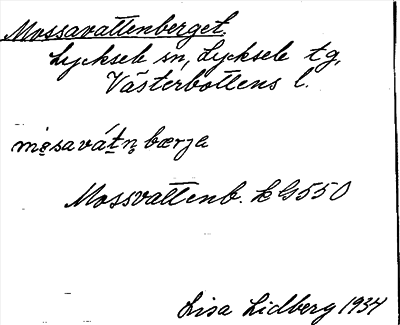 Mossavattenberget.
Lycksele sn, Lycksele tg,
Västerbottens l.
mo̤savát̠n̥bærja
Mossvattenb. LG550
Lisa Lidberg 1934